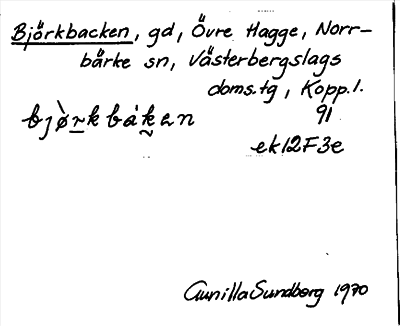 Björkbacken, gd, Övre Hagge, Norr-
bärke sn, Västerbergslags
doms.tg, Kopp.l.
bjòrkbáken 91
ek12F3e
Gunilla Sundberg 1970